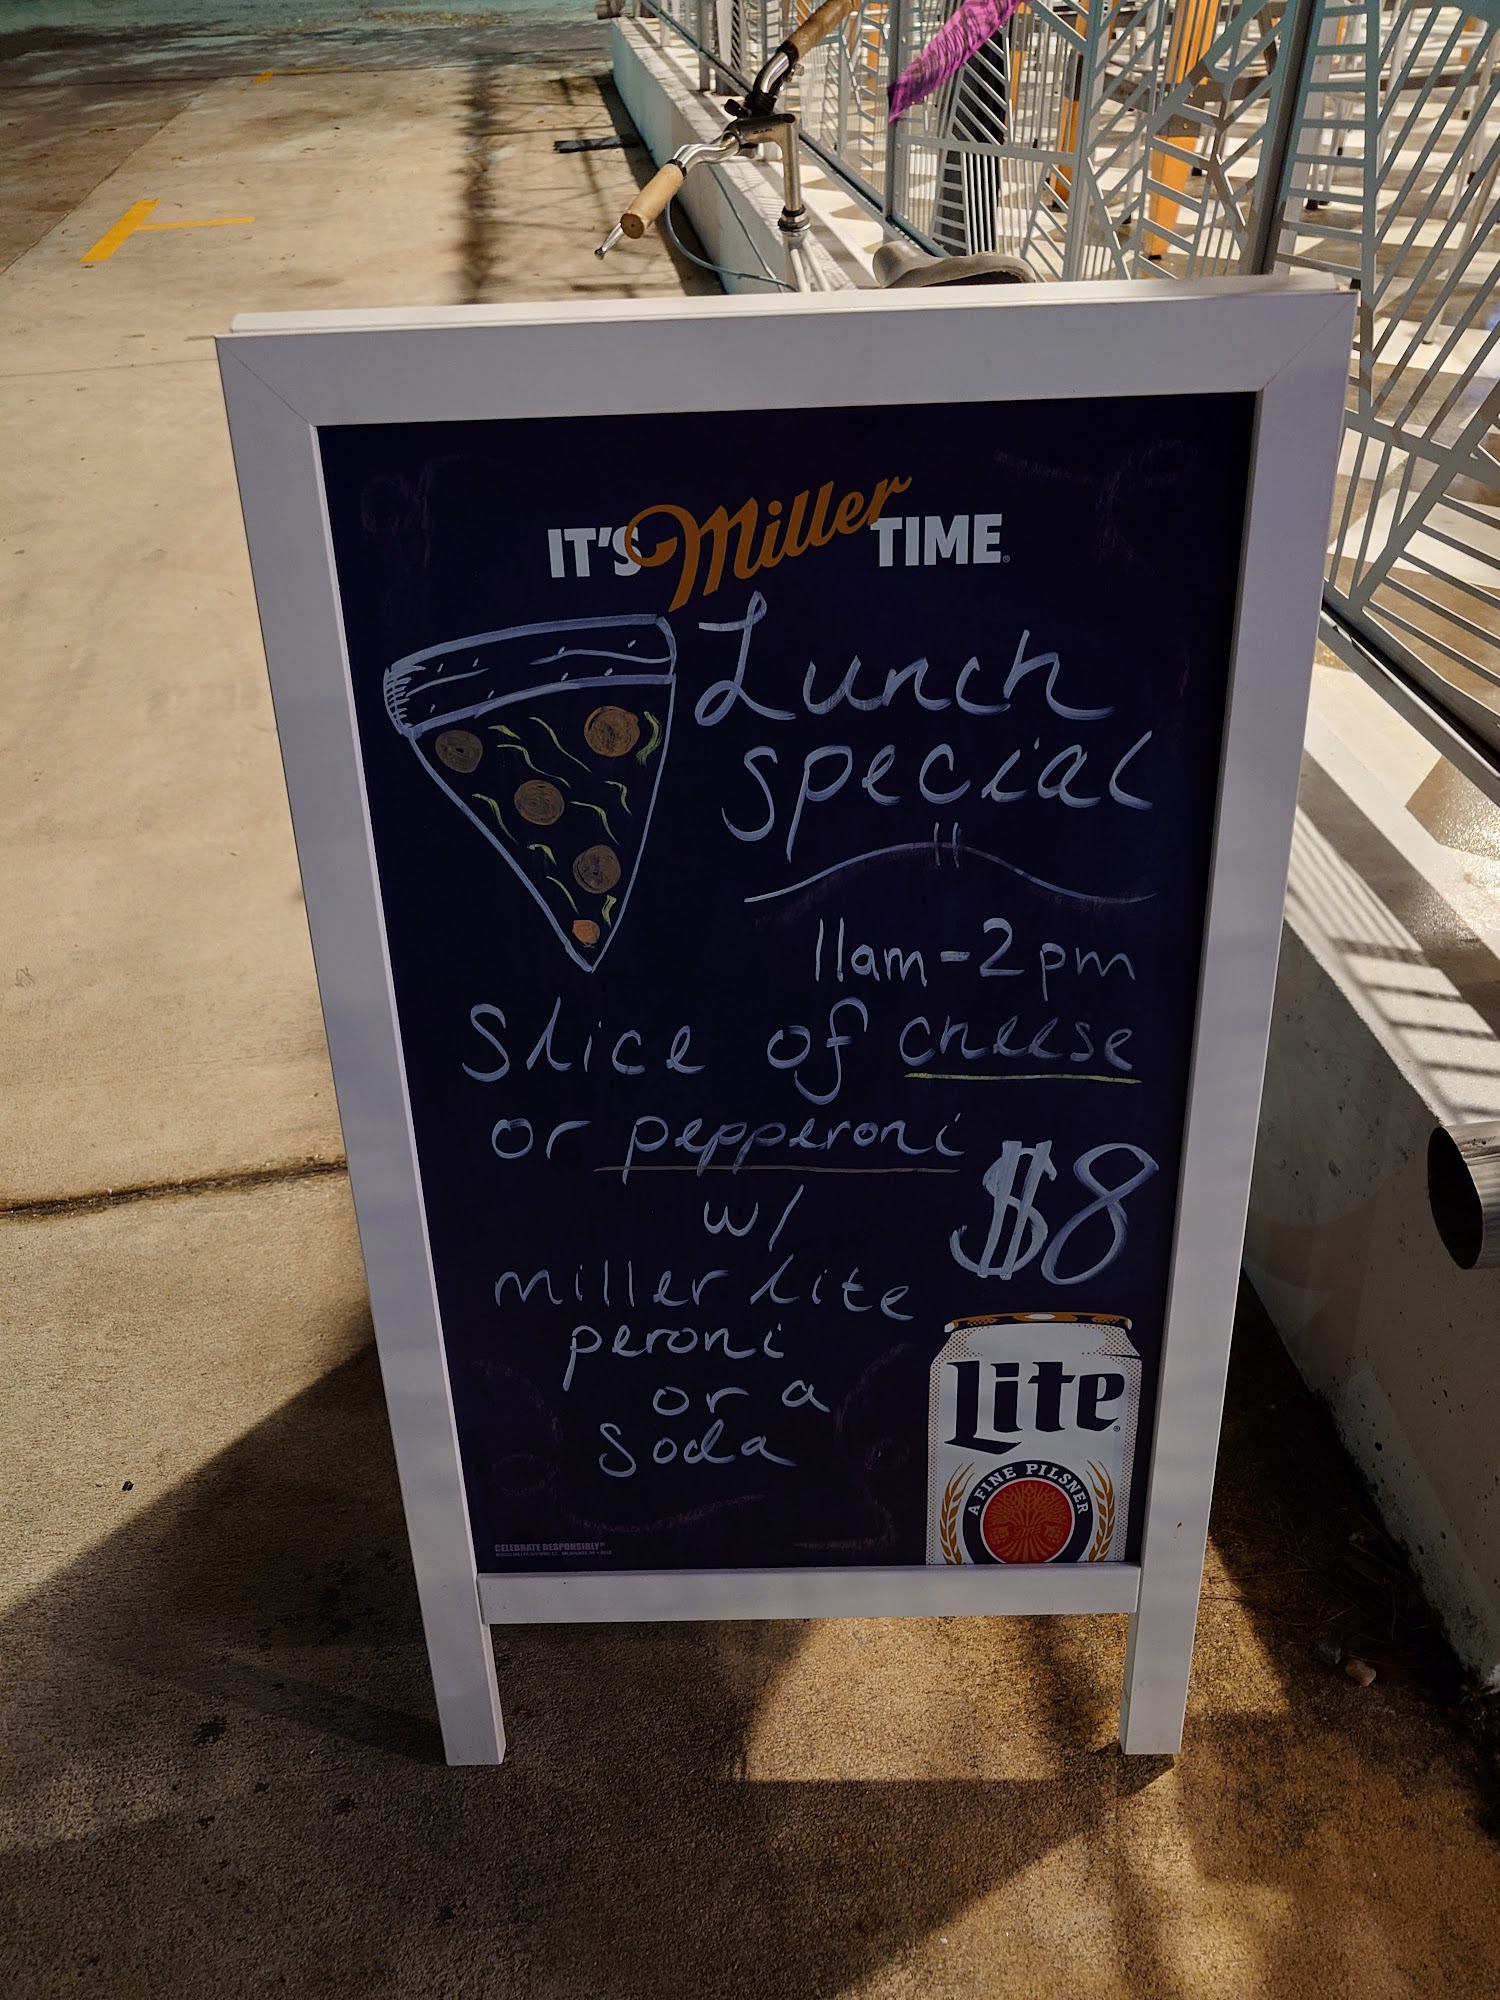 IT'S Miller TIME
Lunch
special
11am-2pm
Slice of cheese
or pepperoni
$8
w/
miller Lite
peroni
or a
Soda
Lite
A FINE PILSNER
CELEBRATE RESPONSIBLY